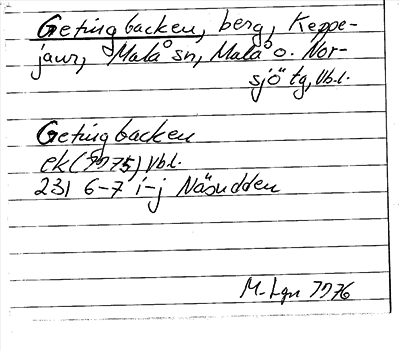 Getingbacken, berg, Keppe-
jaur, Malå sn, Malå o. Nor-
sjö tg, Vb.l.
Getingbacken
ek (1975) Vb.l.
231 6-7 i-j Näsudden
M. Lgn 1976